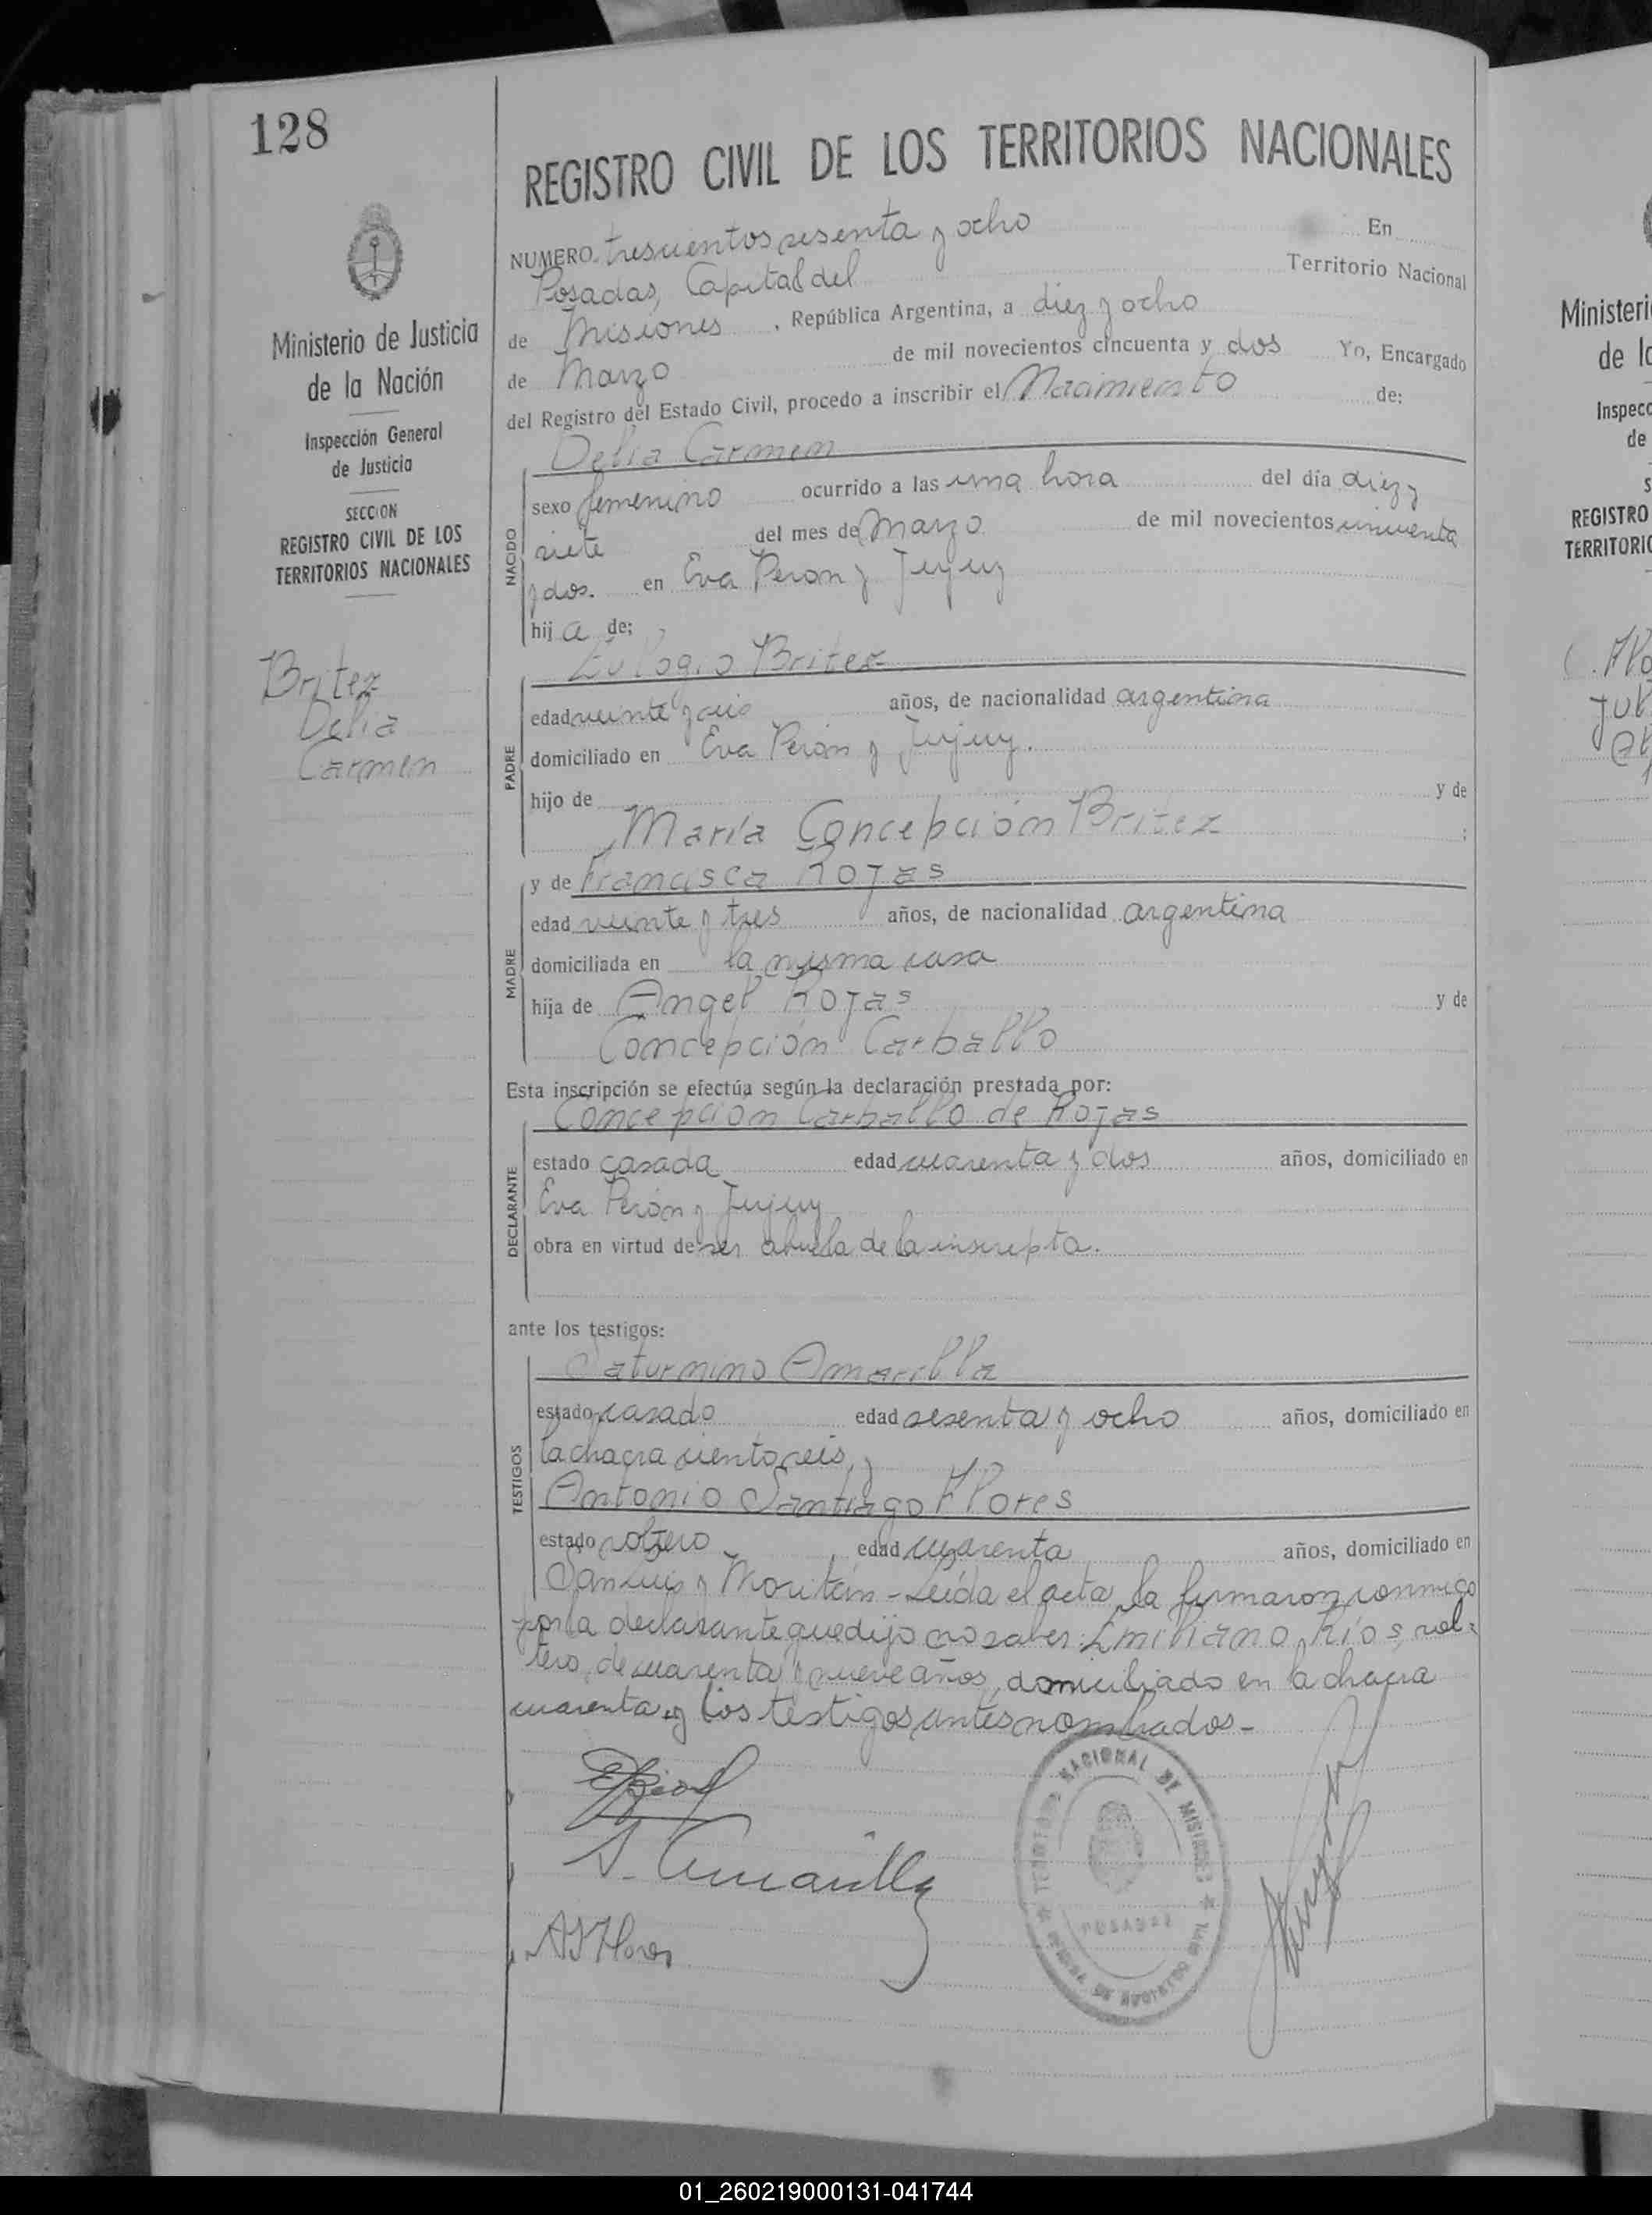 128
Ministerio de Justicia
de la Nación
Inspección General
de Justicia
SECCION
REGISTRO CIVIL DE LOS
TERRITORIOS NACIONALES
Britez
Delia
Carmen
REGISTRO CIVIL DE LOS TERRITORIOS NACIONALES
NUMERO trescientos sesenta y ocho En
Posadas, Capital del Territorio Nacional
de Misiones, República Argentina, a diez y ocho
de Marzo de mil novecientos cincuenta y dos Yo, Encargado
del Registro del Estado Civil, procedo a inscribir el Nacimiento de:
Delia Carmen
NACIDO
sexo femenino ocurrido a las una hora del día diez y
siete del mes de Marzo de mil novecientos cincuenta
y dos. en Eva Perón y Jujuy
hija de:
Eulogio Britez
PADRE
edad veinte y seis años, de nacionalidad argentina
domiciliado en Eva Perón y Jujuy.
hijo de y de
María Concepción Britez ;
y de Francisca Rojas
MADRE
edad veinte y tres años, de nacionalidad argentina
domiciliada en la misma casa
hija de Angel Rojas y de
Concepción Carballo
Esta inscripción se efectúa según la declaración prestada por:
Concepción Carballo de Rojas
DECLARANTE
estado casada edad cuarenta y dos años, domiciliado en
Eva Perón y Jujuy
obra en virtud de ser abuela de la inscripta.
ante los testigos:
Saturnino Amarilla
TESTIGOS
estado casado edad sesenta y ocho años, domiciliado en
la chacra ciento seis, y
Antonio Santiago Flores
estado soltero edad cuarenta años, domiciliado en
San Luis y Moritán - Leída el acta, la firmaron conmigo
por la declarante que dijo no saber: Emiliano Ríos, sol=
tero, de cuarenta y nueve años, domiciliado en la chacra
cuarenta, y los testigos antes nombrados -
E Rios
S. Amarilla
A S Flores
TERRITORIO NACIONAL DE MISIONES
POSADAS
OFICINA DE REGISTRO CIVIL
Ministeri
de la
Inspecc
de
S
REGISTRO
TERRITORIO
01_260219000131-041744